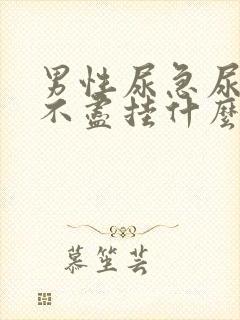 男性尿急尿
不盡挂什麽
慕笙芸